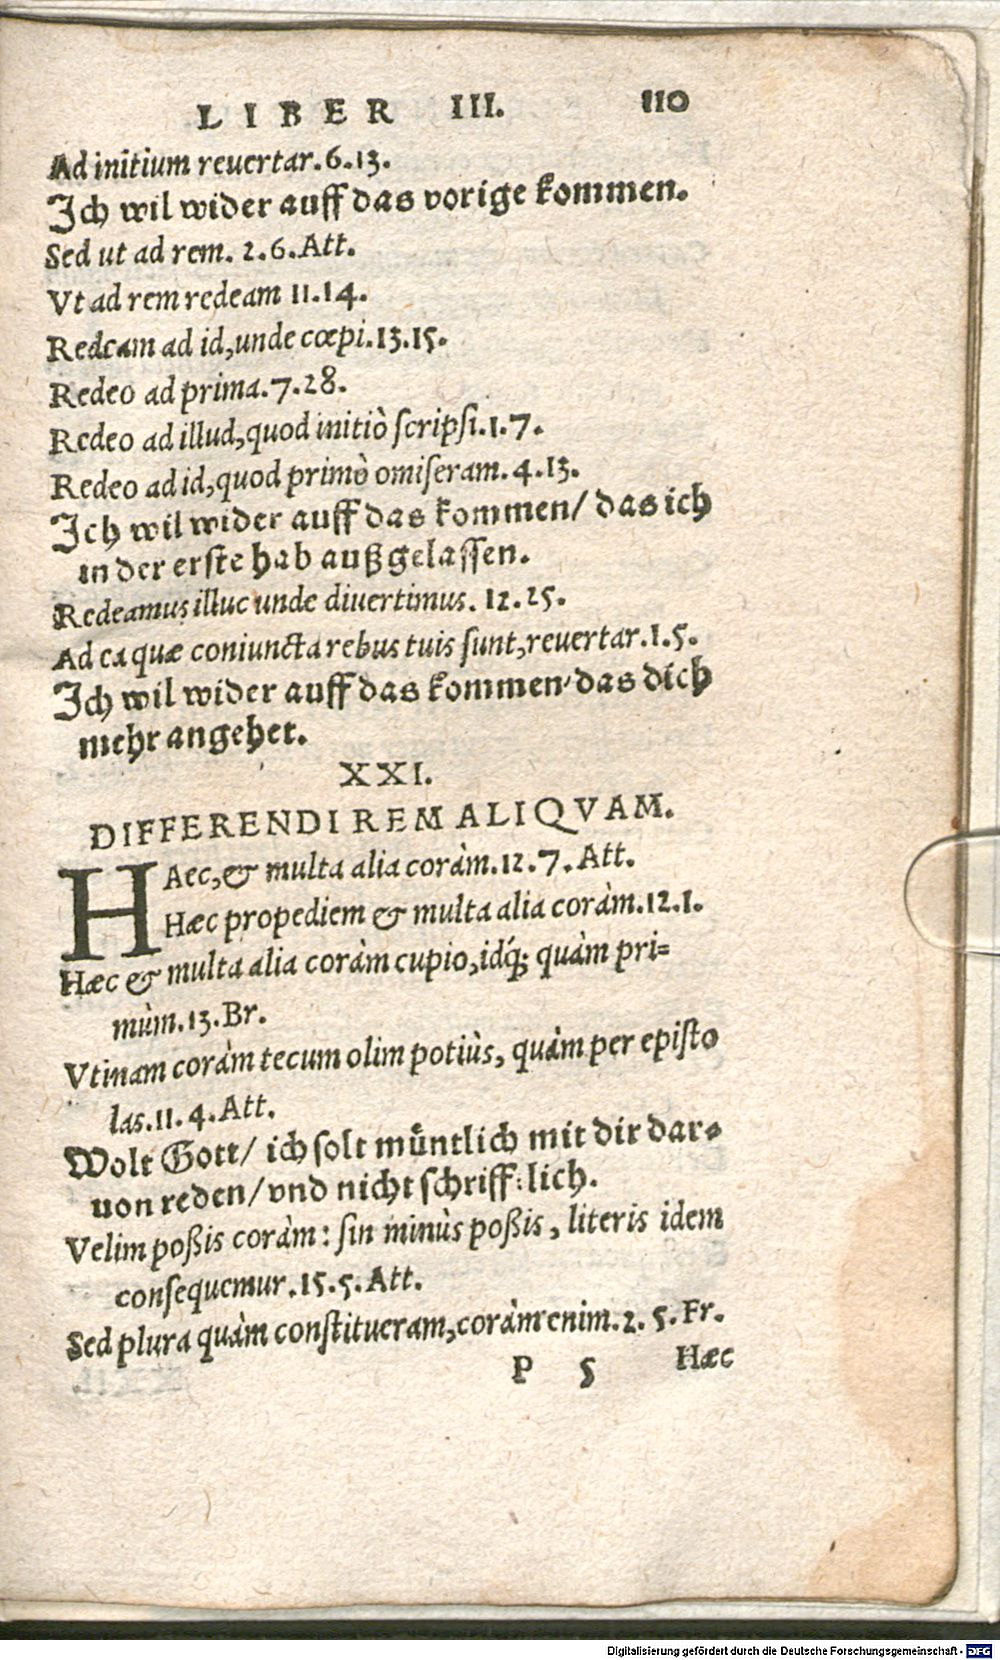 LIBER III. 110
Ad initium reuertar. 6. 13.
Ich wil wider auff das vorige kommen.
Sed ut ad rem. 2. 6. Att.
Vt ad rem redeam 11. 14.
Redeam ad id, unde cœpi. 13. 15.
Redeo ad prima. 7. 28.
Redeo ad illud, quod initiò ſcripſi. 1. 7.
Redeo ad id, quod primò omiſeram. 4. 13.
Ich wil wider auff das kommen/ das ich
in der erſte hab außgelaſſen.
Redeamus illuc unde diuertimus. 12. 25.
Ad ea quæ coniuncta rebus tuis ſunt, reuertar. 1. 5.
Ich wil wider auff das kommen/ das dich
mehr angehet.
XXI.
DIFFERENDI REM ALIQVAM.
HAec, & multa alia coràm. 12. 7. Att.
Hæc propediem & multa alia coràm. 12. 1.
Hæc & multa alia coràm cupio, idq́; quàm pri=
mùm. 13. Br.
Vtinam coràm tecum olim potiùs, quàm per epiſto
las. 11. 4. Att.
Wolt Gott/ ich ſolt muͤntlich mit dir dar-
uon reden/ vnd nicht ſchriff:lich.
Velim poßis coràm: ſin minùs poßis, literis idem
conſequemur. 15. 5. Att.
Sed plura quàm conſtitueram, coràm enim. 2. 5. Fr.
P 5 Hæc
Digitalisierung gefördert durch die Deutsche Forschungsgemeinschaft - DFG